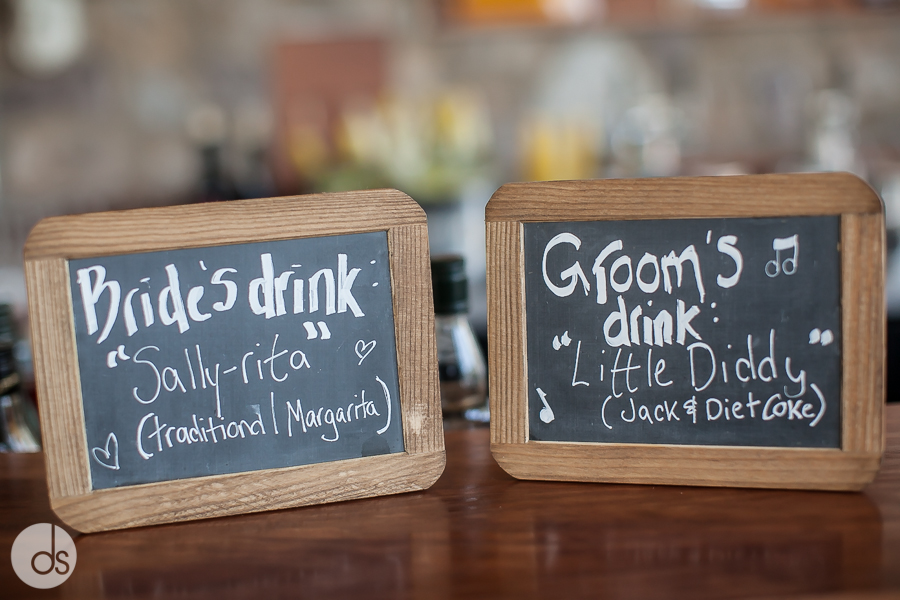 Bride's drink:
"Sally-rita"
(traditional Margarita)
Groom's
drink:
"Little Diddy"
(Jack & Diet Coke)
ds